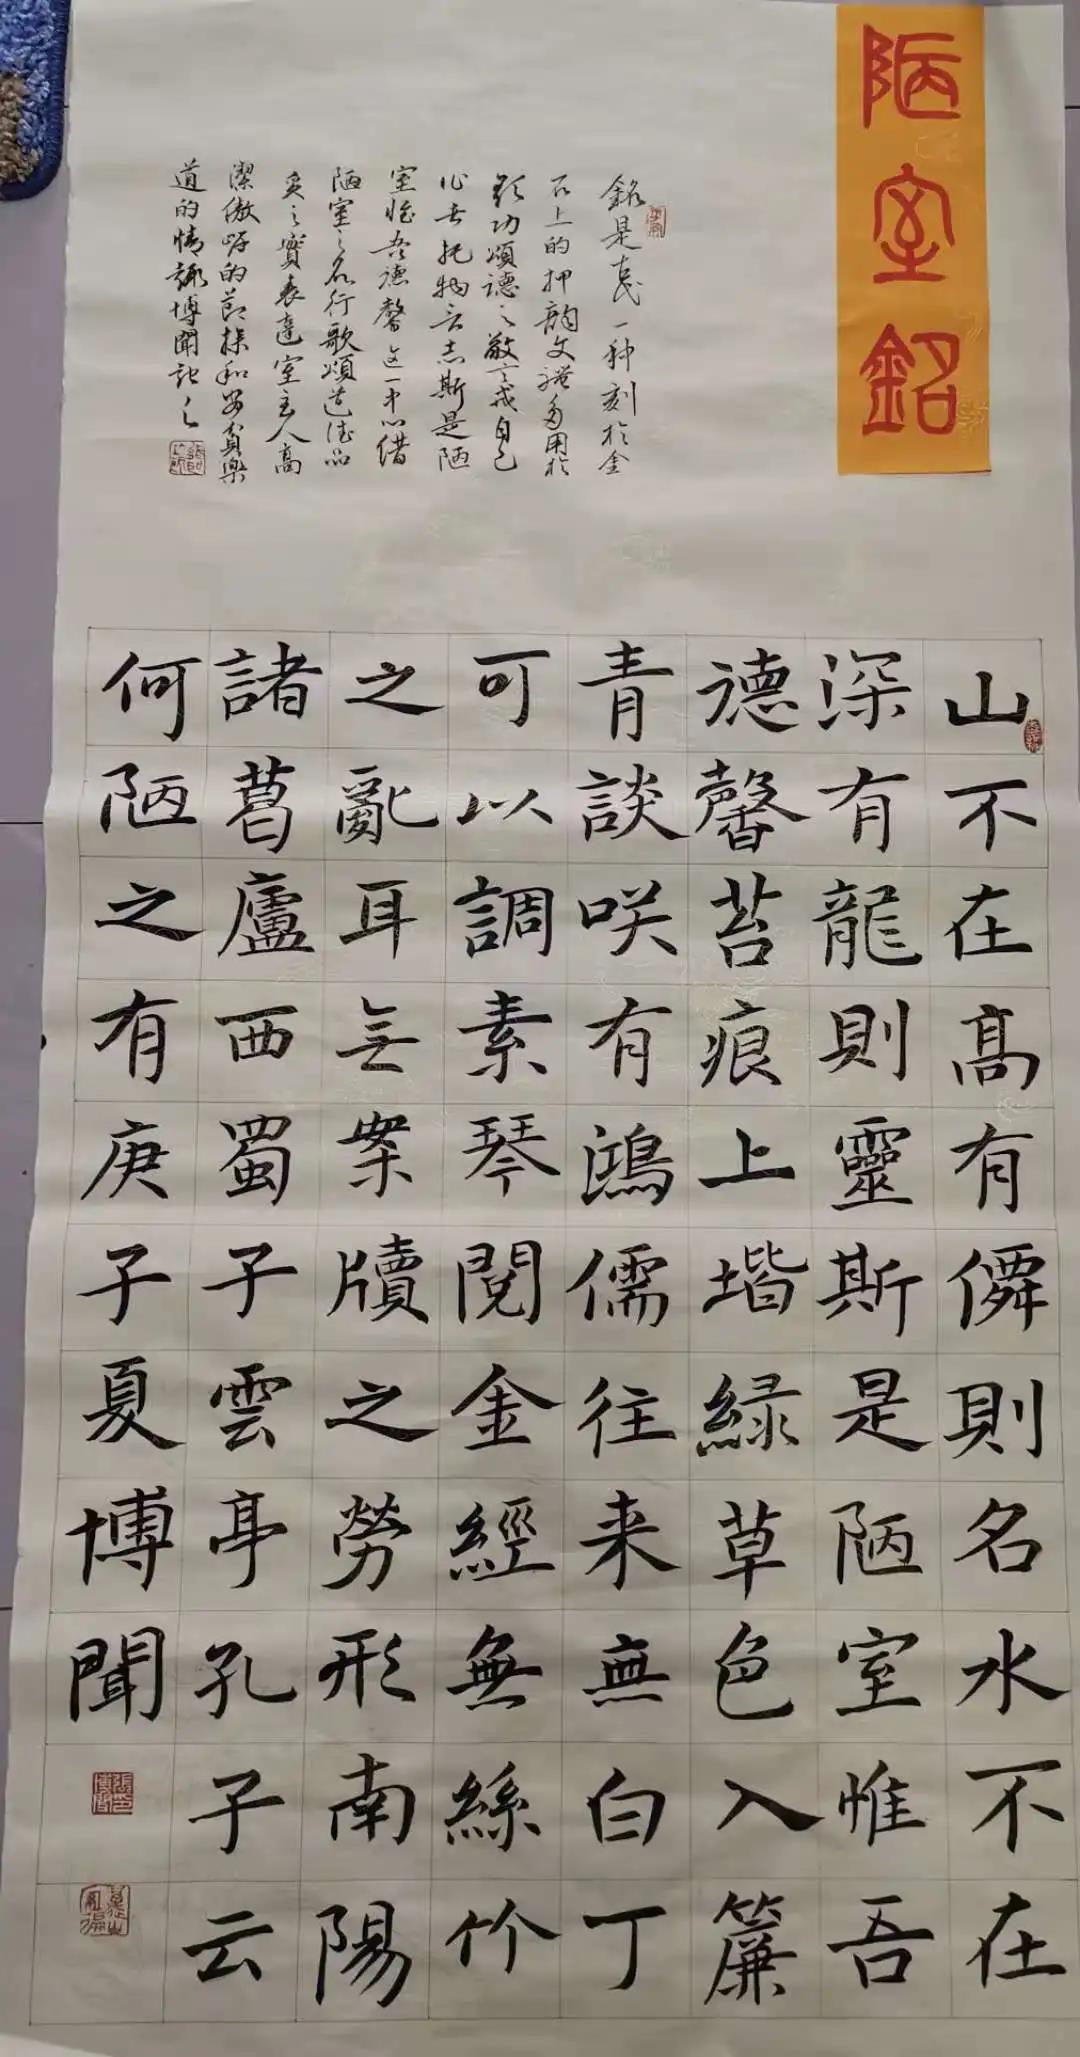 陋室銘
銘是古代一种刻於金
石上的押韵文體多用於
歌功頌德之警戒自己
作者托物言志斯是陋
室惟吾德馨这一中心借
陋室之名行歌頌道德品
质之實表達室主人高
潔傲岸的節操和安貧樂
道的情趣博聞記之
山不在髙有僊則名水不在
深有龍則靈斯是陋室惟吾
德馨苔痕上堦緑草色入簾
青談咲有鴻儒往来無白丁
可以調素琴閲金經無絲竹
之亂耳無案牘之勞形南陽
諸葛廬西蜀子雲亭孔子云
何陋之有庚子夏博聞